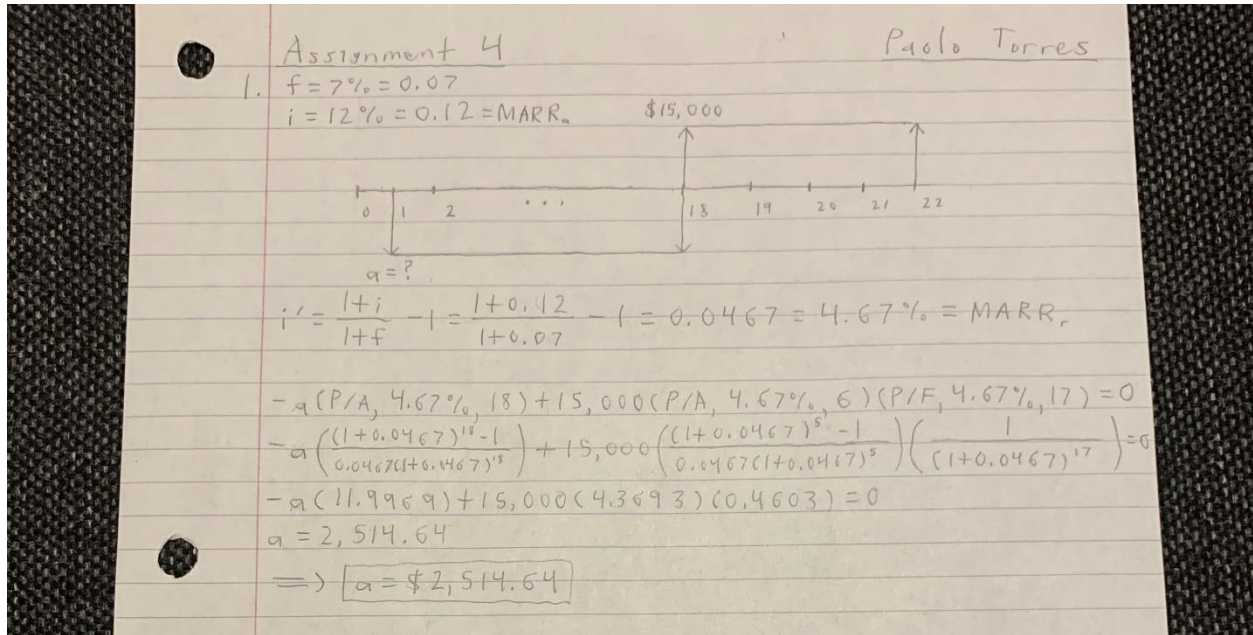 Assignment 4 Paolo Torres
1. f = 7% = 0.07
i = 12% = 0.12 = MARRₐ
$15,000
0 1 2 ... 18 19 20 21 22
a = ?
i' = (1+i)/(1+f) - 1 = (1+0.12)/(1+0.07) - 1 = 0.0467 = 4.67% = MARRᵣ
-a(P/A, 4.67%, 18) + 15,000(P/A, 4.67%, 6)(P/F, 4.67%, 17) = 0
-a(((1+0.0467)^18 - 1)/(0.0467(1+0.0467)^18)) + 15,000(((1+0.0467)^5 - 1)/(0.0467(1+0.0467)^5))(1/(1+0.0467)^17) = 0
-a(11.9969) + 15,000(4.3693)(0.4603) = 0
a = 2,514.64
⇒ a = $2,514.64